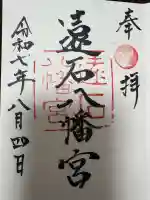 奉拝
遠石八幡宮
令和七年八月四日